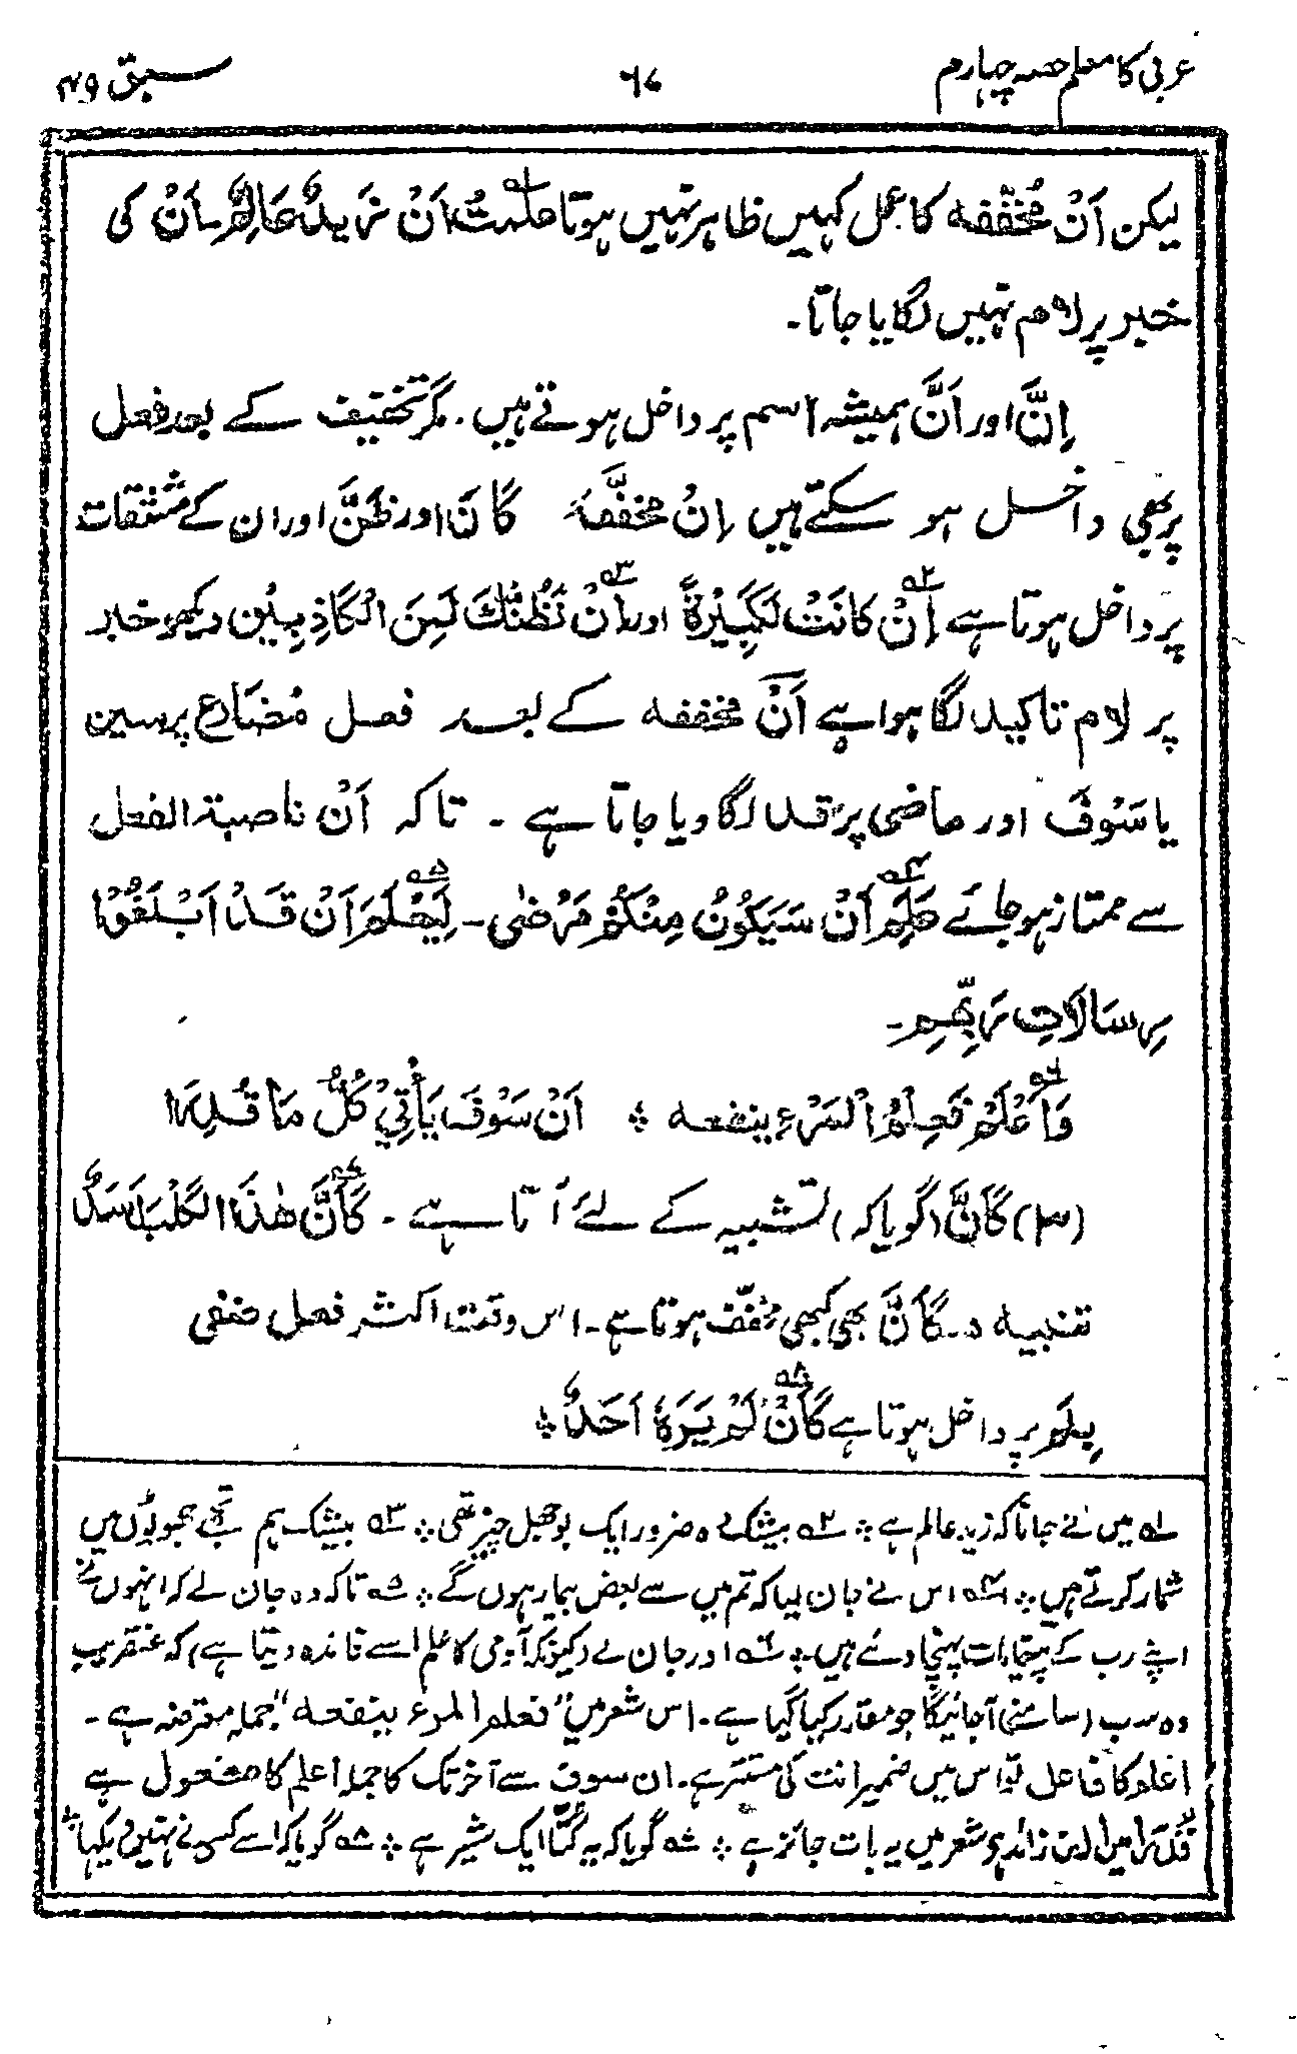 عربی کا معلم حصہ چہارم
۶۷
سبق ۴۹
لیکن اَنْ مُخَفَّفہ کا عمل کہیں ظاہر نہیں ہوتا علمتُ اَنْ زیدٌ عَالِمٌ اَنْ کی
خبر پر لام نہیں لگایا جاتا۔
اِنَّ اور اَنَّ ہمیشہ اسم پر داخل ہوتے ہیں۔ مگر تخفیف کے بعد فعل
پر بھی داخل ہو سکتے ہیں اِنْ مخففَّہ کَانَ اور ظَنَّ اور ان کے مشتقات
پر داخل ہوتا ہے اِنْ کَانَتْ لَکَبِیْرَۃً اور اِنْ نَظُنُّکَ لَمِنَ الْکَاذِبِیْنَ دیکھو خبر
پر لام تاکید لگا ہوا ہے اَنْ مخففہ کے بعد فعل مُضَارع پر سین
یا سَوْفَ اور ماضی پر قد لگا دیا جاتا ہے ۔ تاکہ اَنْ ناصبۃ الفعل
سے ممتاز ہو جائے عَلِمَ اَنْ سَیَکُوْنُ مِنْکُمْ مَرْضٰی۔ لِیَعْلَمَ اَنْ قَدْ اَبْلَغُوْا
رِسَالَاتِ رَبِّهِمْ۔
وَاعْلَمْ فَعِلْمُ الْمَرْءِ ینفعہ ٭ اَنْ سَوْفَ یَأْتِیْ کُلُّ مَا قُدِرَا
(۳) کَأَنَّ (گویا کہ) تشبیہ کے لئے آتا ہے ۔ کَأَنَّ ھٰذَا الکَلْبَ اَسَدٌ
تنبیہ ۵۔ کَأَنَّ بھی کبھی مخفّف ہوتا ہے۔ اس وقت اکثر فعل منفی
بِلَم پر داخل ہوتا ہے کَأَنْ لَمْ یَرَہٗ اَحَدٌ ٭
لہ۱ میں نے جانا کہ زید عالم ہے ٭ ۲ہ بیشک وہ ضرور ایک بوجھل چیز تھی ٭ ۳ہ بیشک ہم تجھے جھوٹوں میں
شمار کرتے ہیں ٭ ۴ہ اس نے جان لیا کہ تم میں سے بعض بیمار ہوں گے ٭ ۵ہ تاکہ وہ جان لے کہ انہوں نے
اپنے رب کے پیغامات پہنچا دئے ہیں۔ ٭ ۶ہ اور جان لے (کیونکہ آدمی کا علم اسے فائدہ دیتا ہے) کہ عنقریب
وہ سب (سامنے) آجائیگا جو مقدر کیا گیا ہے۔ اس شعر میں "فعلم المرء ینفعہ" جملہ معترضہ ہے ۔
اعلم کا فاعل تو اس میں ضمیر انت کی مستتر ہے۔ ان سوف سے آخر تک کا جملہ اعلم کا مفعول ہے
قُدِرَا میں الف زائد ہے شعر میں یہ بات جائز ہے ٭ ۷ہ گویا کہ یہ کُتّا ایک شیر ہے ٭ ۸ہ گویا کہ اسے کسی نے نہیں دیکھا ٭